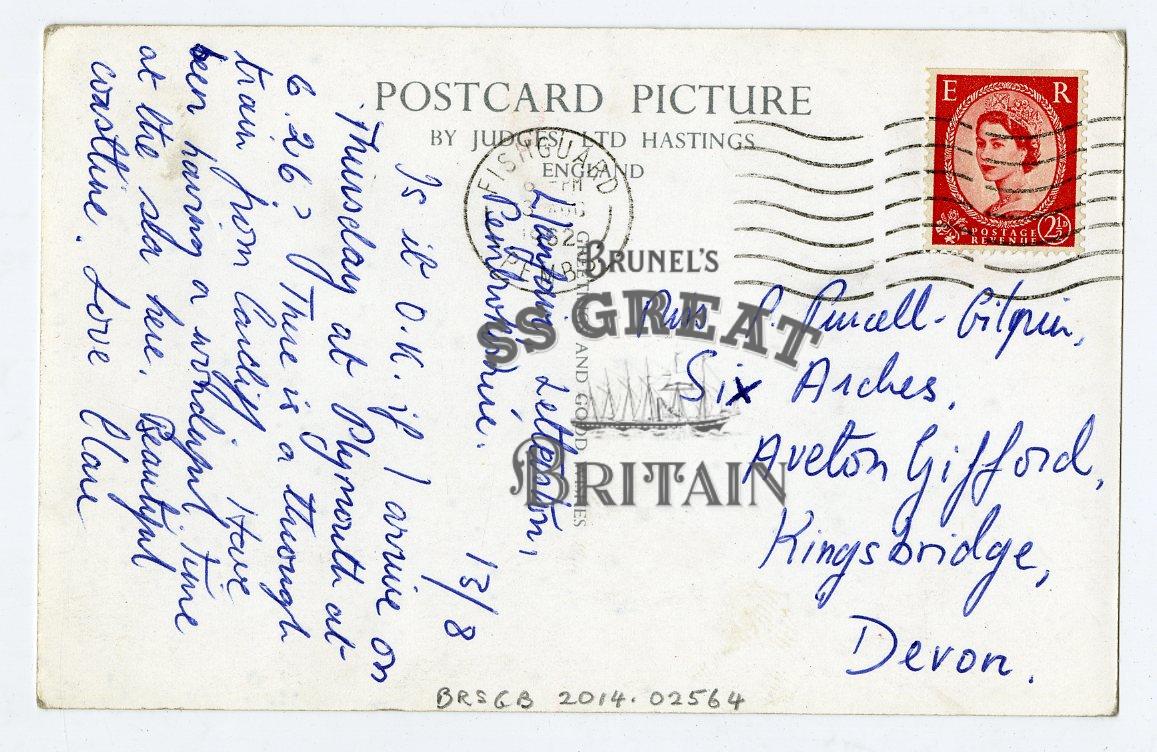 POSTCARD PICTURE
BY JUDGES LTD HASTINGS
ENGLAND
FISHGUARD
PM
PEMB
E R
POSTAGE
REVENUE
2½D
GREET AND GOOD
BRUNEL'S
SS GREAT
BRITAIN
Letterston,
Pembrokeshire.
13/8
Is it O.K. if I arrive on
Thursday at Plymouth at
6.26? There is a through
train from Cardiff. Have
been having a wonderful time
at the sea here. Beautiful
coastline. Love Clare
P. Purcell-Gilpin,
Six Arches,
Aveton Gifford,
Kingsbridge,
Devon.
BRSGB 2014.02564